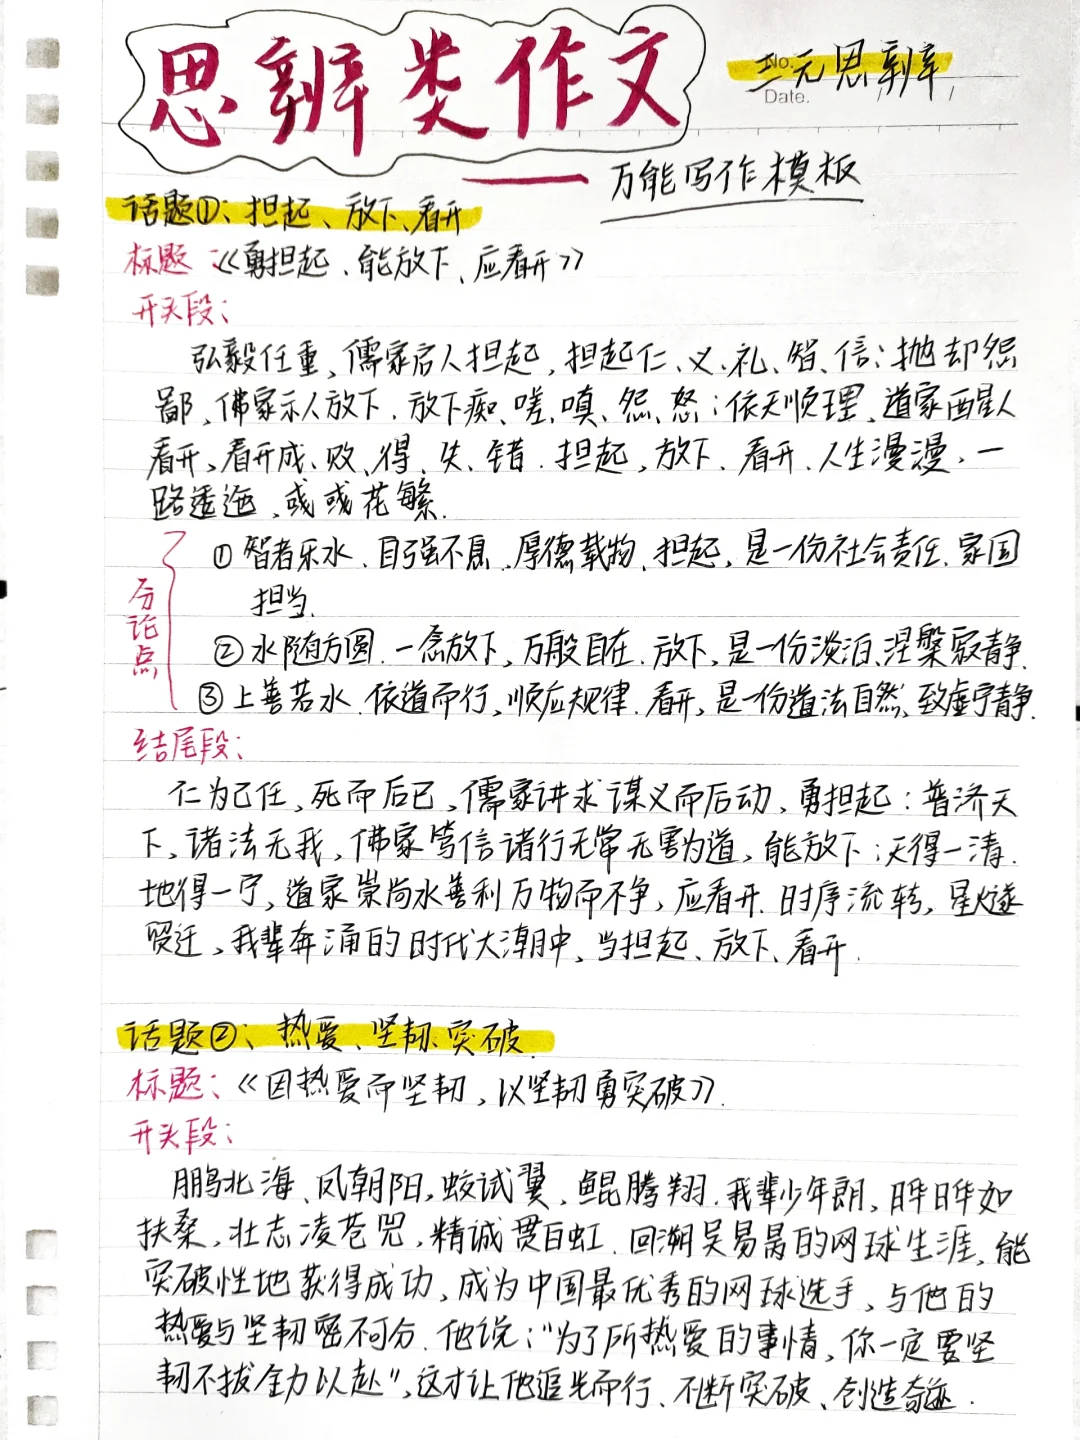 思辨类作文
No.
三元思辨
Date.
万能写作模板
话题①：担起、放下、看开
标题：《勇担起、能放下、应看开》
开头段：
弘毅任重，儒家启人担起，担起仁、义、礼、智、信；抛却怨
鄙，佛家示人放下，放下痴、嗟、嗔、怨、怒；依天顺理，道家醒人
看开，看开成、败、得、失、错．担起，放下，看开，人生漫漫，一
路逶迤，或或花繁．
分论点
①智者乐水，自强不息，厚德载物，担起，是一份社会责任，家国
担当．
②水随方圆．一念放下，万般自在．放下，是一份淡泊、涅槃寂静．
③上善若水．依道而行，顺应规律．看开，是一份道法自然，致虚宁静．
结尾段：
仁为己任，死而后已，儒家讲求谋义而后动，勇担起；普济天
下，诸法无我，佛家笃信诸行无常无害为道，能放下；天得一清．
地得一宁，道家崇尚水善利万物而不争，应看开．时序流转，星燧
贸迁，我辈奔涌的时代大潮中，当担起、放下、看开．
话题②：热爱、坚韧、突破．
标题：《因热爱而坚韧，以坚韧勇突破》．
开头段：
鹏北海、凤朝阳，蛟试翼，鲲腾翔．我辈少年朗，晔晔如
扶桑，壮志凌苍兕，精诚贯白虹．回溯吴易昺的网球生涯，能
突破性地获得成功，成为中国最优秀的网球选手，与他的
热爱与坚韧密不可分．他说："为了所热爱的事情，你一定要坚
韧不拔全力以赴"，这才让他追光而行、不断突破、创造奇迹．